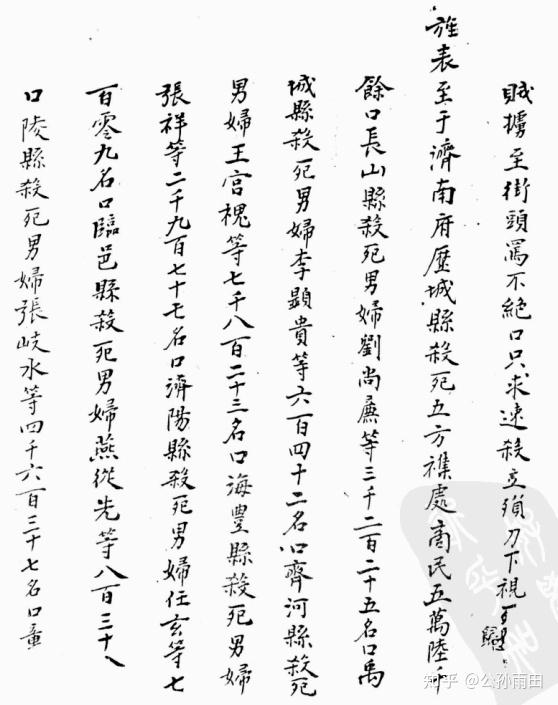 賊擄至街頭罵不絕口只求速殺立殞刀下視
旌表至于濟南府歷城縣殺死五方襍處商民五萬陸千
餘口長山縣殺死男婦劉尚薦等三千二百二十五名口禹
城縣殺死男婦李顯貴等六百四十二名口齊河縣殺死
男婦王官槐等七千八百二十三名口海豐縣殺死男婦
張祥等二千九百七十七名口濟陽縣殺死男婦任玄等七
百零九名口臨邑縣殺死男婦燕從先等八百三十八
口陵縣殺死男婦張岐水等四千六百三十七名口童
知乎 @公孙雨田